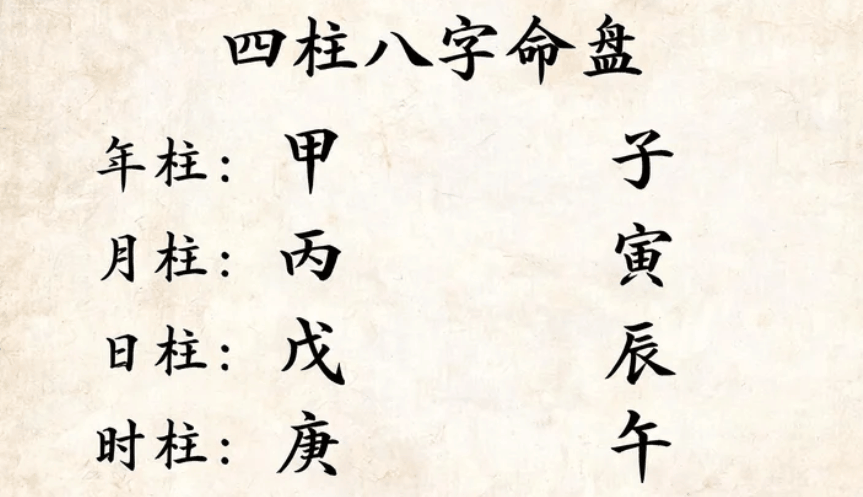 四柱八字命盘
年柱：甲 子
月柱：丙 寅
日柱：戊 辰
时柱：庚 午